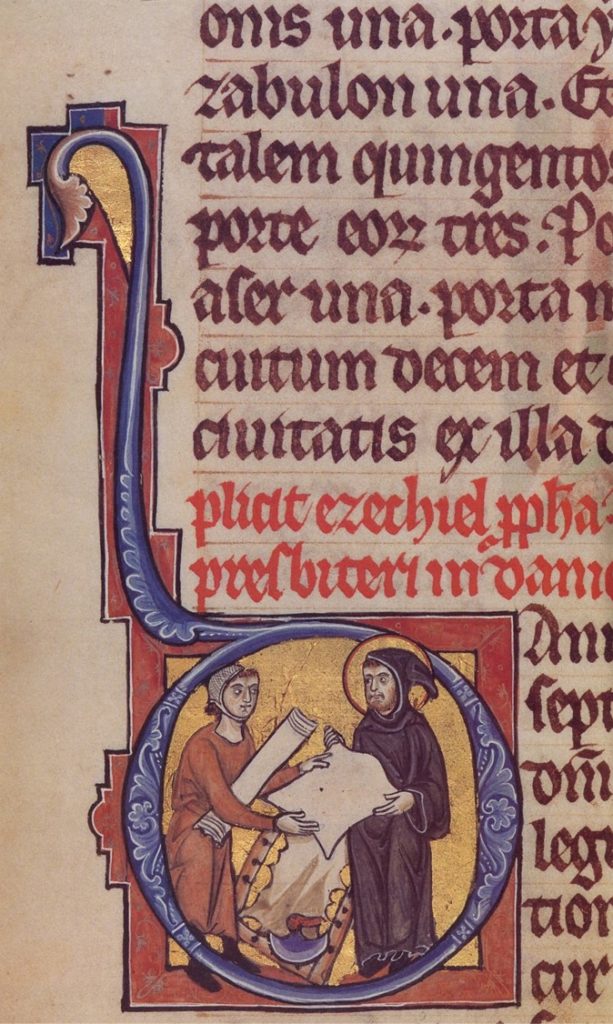 onis una. porta
zabulon una. Et
talem quingentos
porte eoꝝ tres. Po
aser una. porta n
cuitum decem et
ciuitatis ex illa d
plicit ezechiel ꝓpha
presbiteri in dani
Ani
sept
dn̄i
legu
tion
cur